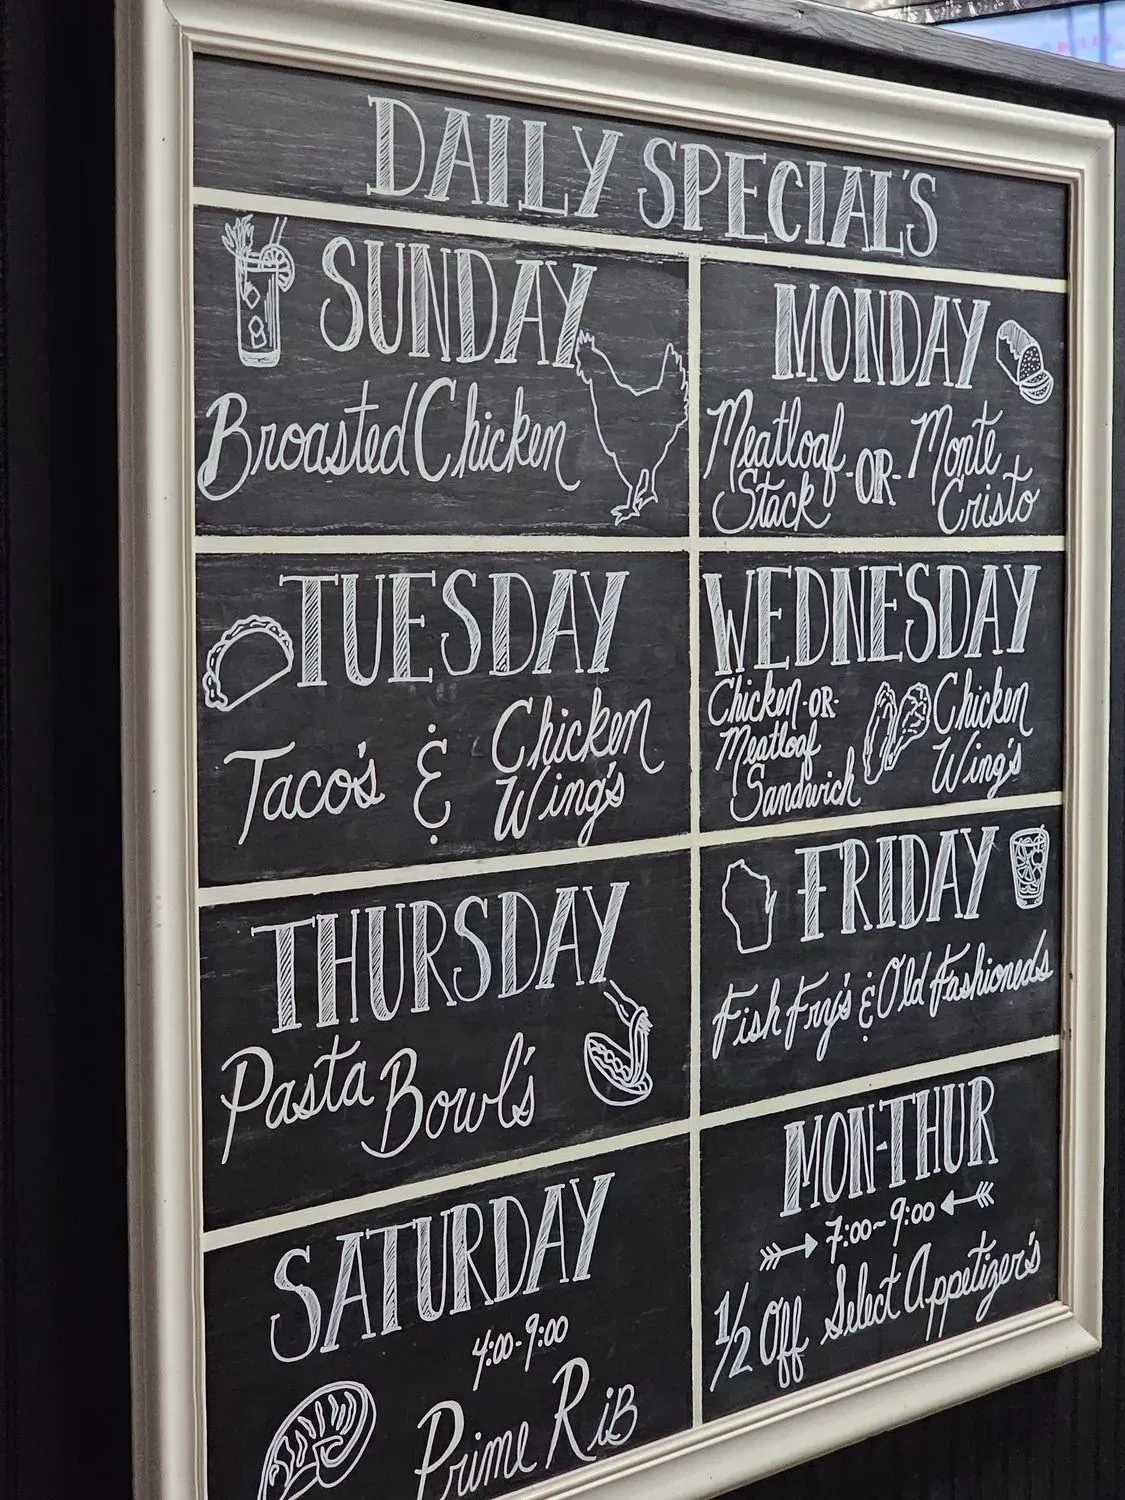 DAILY SPECIAL'S
SUNDAY
Broasted Chicken
MONDAY
Meatloaf Stack -OR- Monte Cristo
TUESDAY
Taco's & Chicken Wing's
WEDNESDAY
Chicken -OR- Meatloaf Sandwich
Chicken Wing's
THURSDAY
Pasta Bowl's
FRIDAY
Fish Fry's & Old Fashioned's
SATURDAY
4:00-9:00
Prime Rib
MON-THUR
7:00~9:00
1/2 Off Select Appetizer's